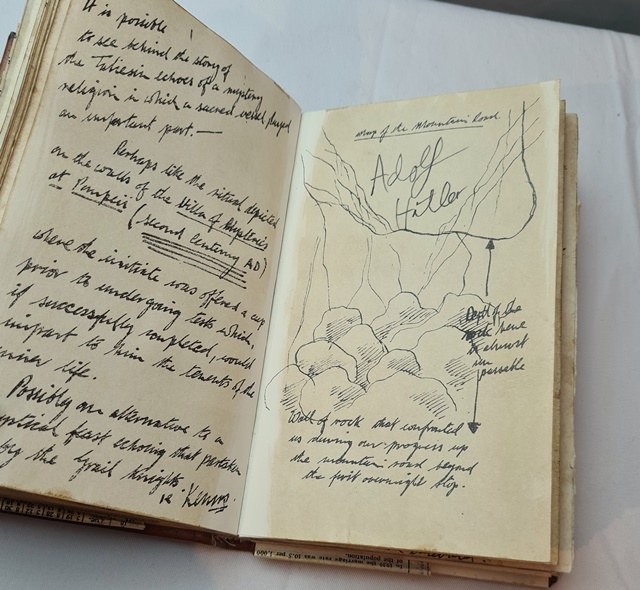 It is possible
to see behind the story of
the Taliesin echoes of a mystery
religion in which a sacred vessel played
an important part. —
Perhaps like the ritual depicted
on the walls of the Villa of Mysteries
at Pompeii (second century AD)
where the initiate was offered a cup
prior to undergoing tests which,
if successfully completed, would
impart to him the tenets of the
inner life.
Possibly an alternative to a
mystical feast echoing that partaken
by the Grail Knights
ie
map of the Mountain Road
Adolf
Hitler
Depth of the
rock here
is almost
im
passable
Wall of rock that confronted
us during our progress up
the mountain road beyond
the first overnight stop.
1. 1938 the marriage rate was 10.5 per 1,000
of the population.